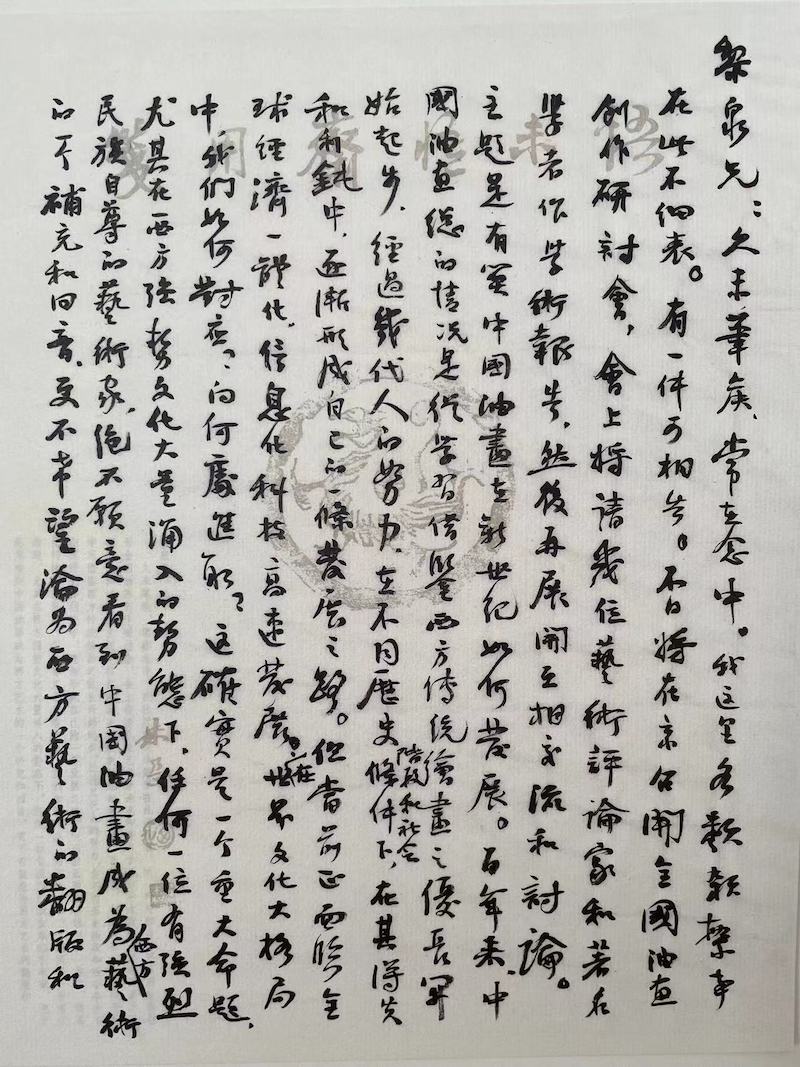 梨泉兄：久未筆候，常在念中。我这里各類雜事
在此不細表。有一件可相告。不日將在京召開全國油画
創作研討會，會上將請幾位藝術評論家和著名
學者作學術報告，然後再展開互相交流和討論。
主題是有關中國油畫在新世紀如何發展。百年来，中
國油画總的情況是從學習借鑒西方傳統繪畫之優長開
始起步，經過幾代人的努力，在不同歷史階段和社会條件下，在其得失
和利鈍中，逐漸形成自己的一條發展之路。但當前正面臨全
球經濟一體化，信息化科技高速發展，在世界文化大格局
中，我們如何對应？向何處進取？这確實是一个重大命題，
尤其在西方強勢文化大量涌入的勢態下，任何一位有強烈
民族自尊的藝術家，絕不願意看到中國油畫成為西方藝術
的一个補充和回音，更不希望淪为西方藝術的翻版和
悟未惟齋用箋